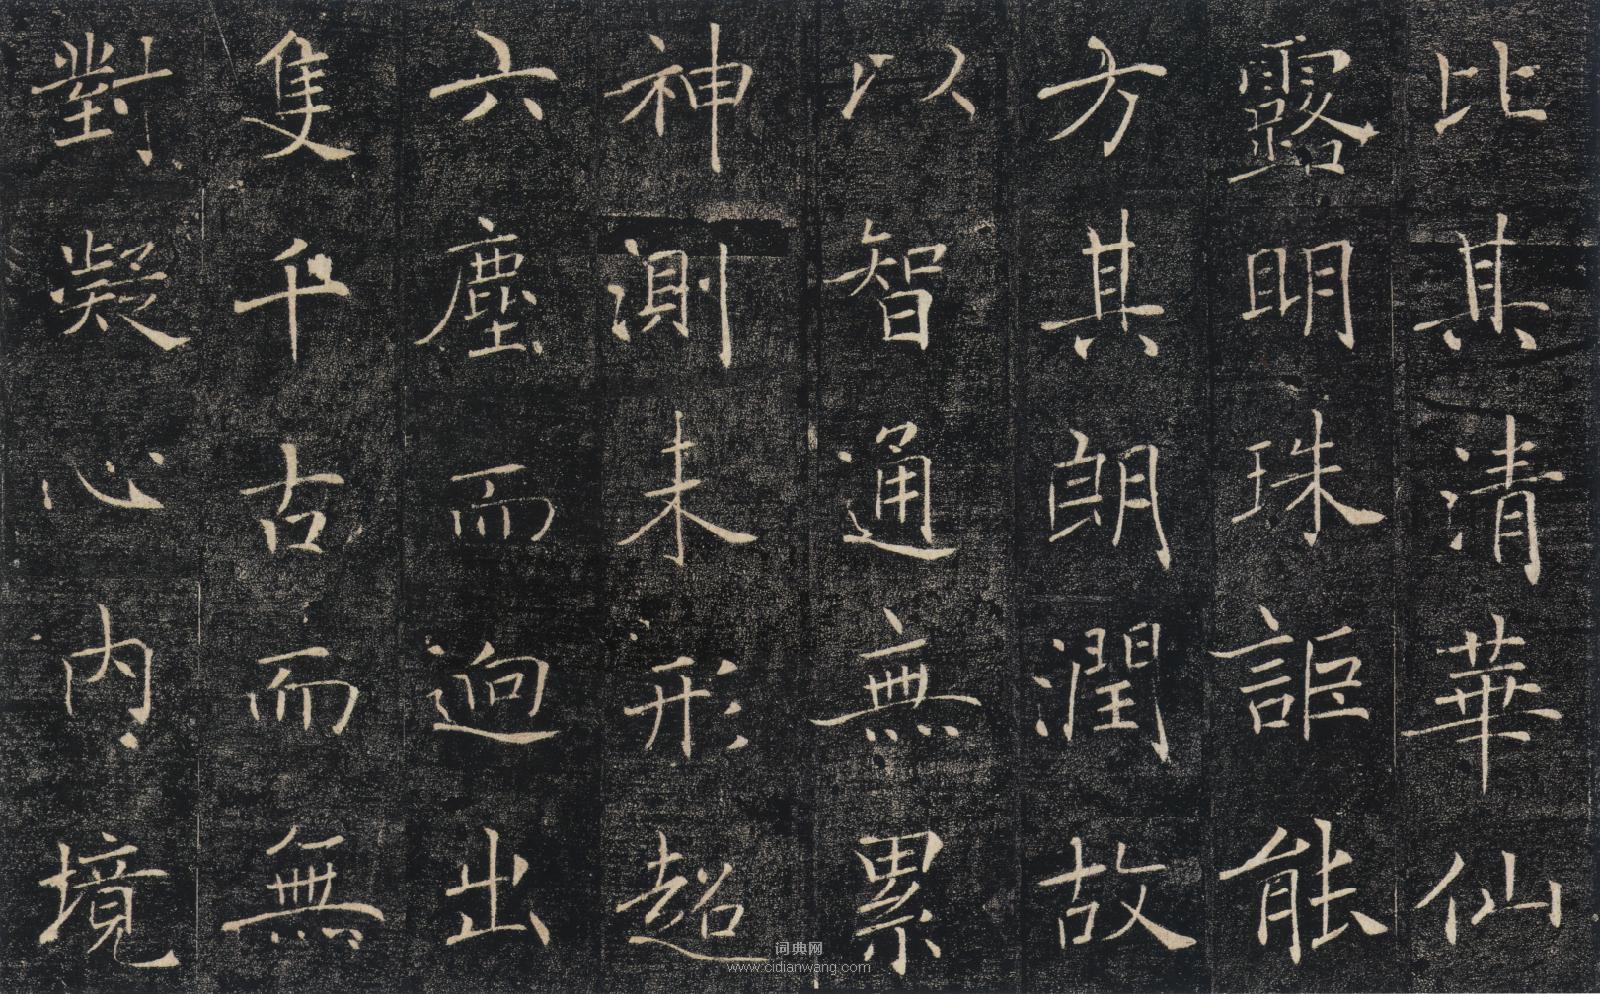 比其清華仙
露明珠詎能
方其朗潤故
以智通無累
神測未形超
六塵而迥出
隻千古而無
對凝心內境
词典网
www.cidianwang.com